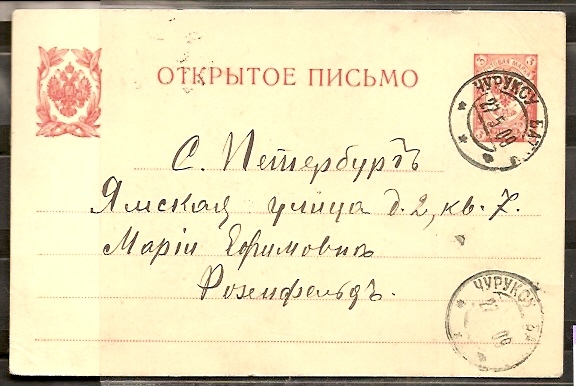 ОТКРЫТОЕ ПИСЬМО
ЧУРУКСУ БАТ
27 5 09
С. Петербургъ
Ямская улица д. 2, кв. 7.
Маріи Ефимовнѣ
Розенфельдъ.
ЧУРУКСУ
09